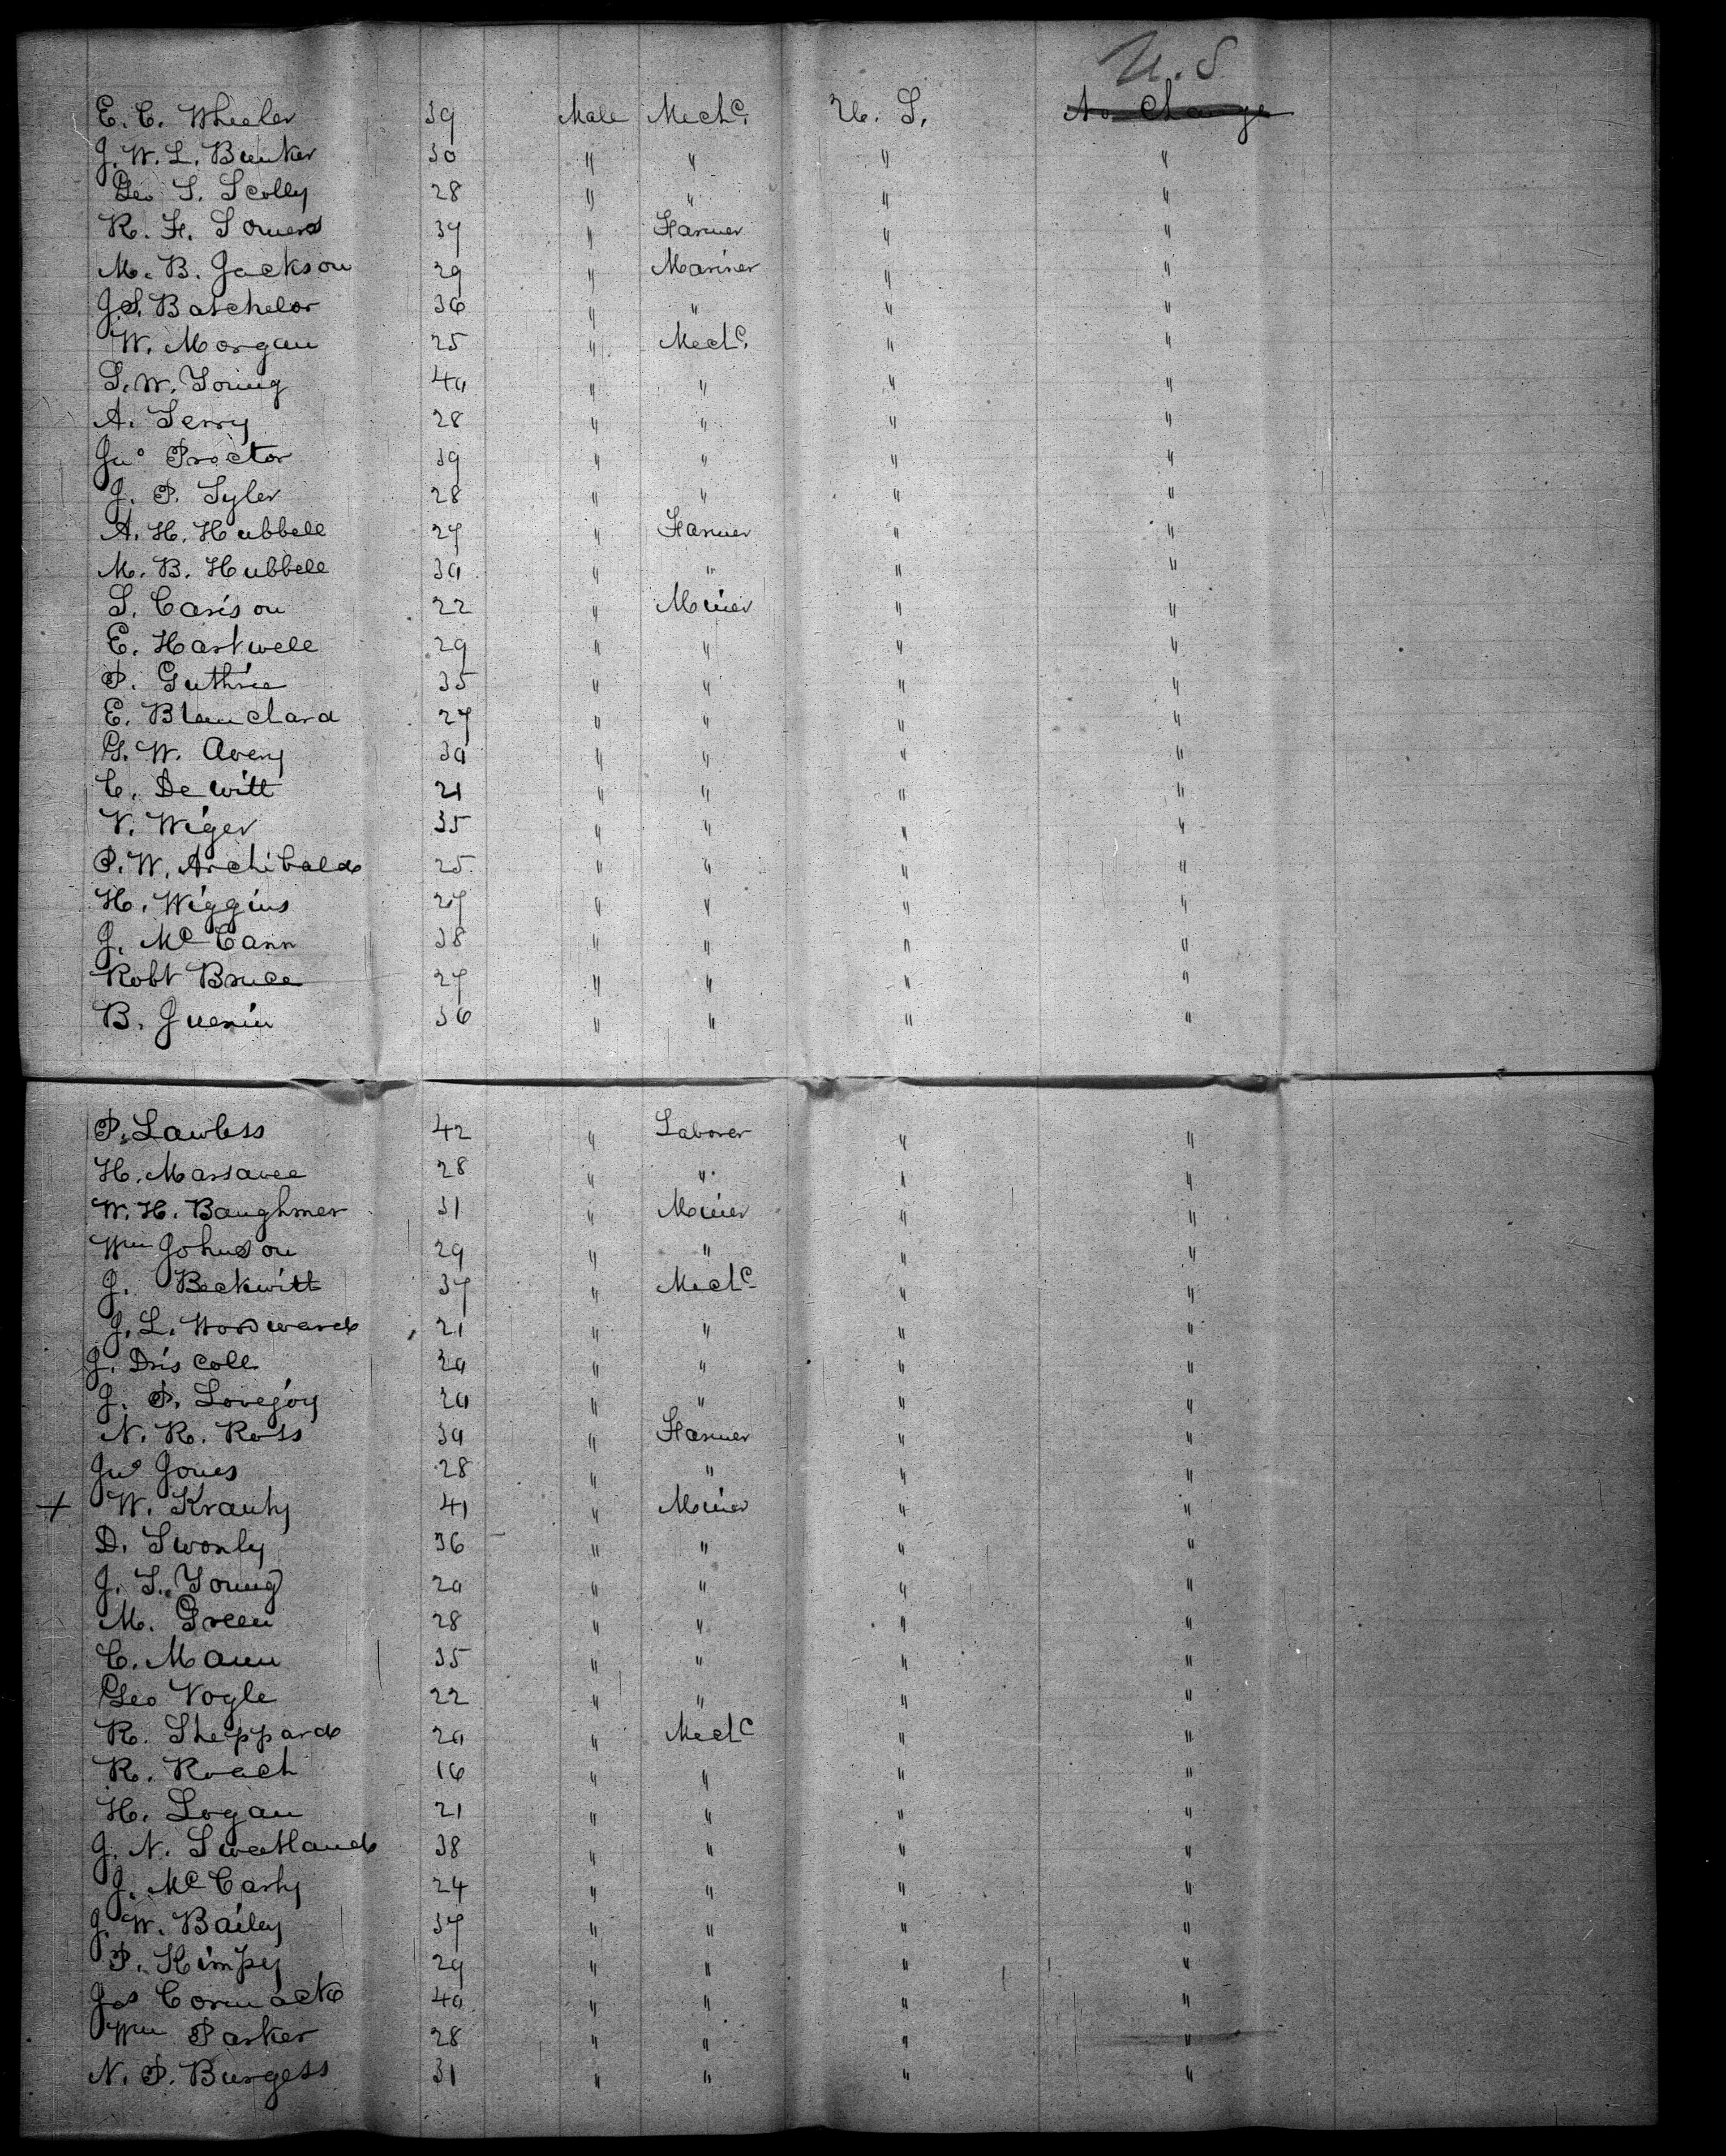 U.S
E. C. Wheeler 39 Male Mech.c U. S. No Change
J. W. L. Bunker 30 " " " "
Geo S. Scolly 28 " " " "
R. F. Somers 37 " Farmer " "
M. B. Jackson 29 " Mariner " "
J. S. Batchelor 36 " " " "
W. Morgan 25 " Mech.c " "
S. W. Young 40 " " " "
A. Terry 28 " " " "
Jno Proctor 39 " " " "
J. P. Tyler 28 " " " "
A. H. Hubbell 27 " Farmer " "
M. B. Hubbell 30 " " " "
S. Carison 22 " Miner " "
E. Hartwell 29 " " " "
P. Guthrie 35 " " " "
E. Blanchard 27 " " " "
G. W. Avery 30 " " " "
C. De Witt 21 " " " "
V. Wiger 35 " " " "
P. W. Archibald 25 " " " "
H. Wiggins 27 " " " "
J. McCann 38 " " " "
Robt Bruce 27 " " " "
B. Juenin 36 " " " "
P. Lawless 42 " Laborer " "
H. Massavee 28 " " " "
W. H. Baughmer 31 " Miner " "
Wm Johnson 29 " " " "
J. Beckwitt 37 " Mechc " "
J. L. Woodward 21 " " " "
J. Driscoll 30 " " " "
J. P. Lovejoy 20 " " " "
N. R. Ross 30 " Farmer " "
Jno Jones 28 " " " "
+ W. Krauty 41 " Miner " "
D. Swonly 36 " " " "
J. S. Young 20 " " " "
M. Green 28 " " " "
C. Mann 35 " " " "
Geo Vogle 22 " " " "
R. Sheppard 20 " Mechc " "
R. Roach 16 " " " "
H. Logan 21 " " " "
J. N. Sweetland 38 " " " "
J. McCarty 24 " " " "
J. W. Bailey 37 " " " "
P. Kimpy 29 " " " "
Jas Cormack 40 " " " "
Wm Parker 28 " " " "
N. P. Burgess 31 " " " "